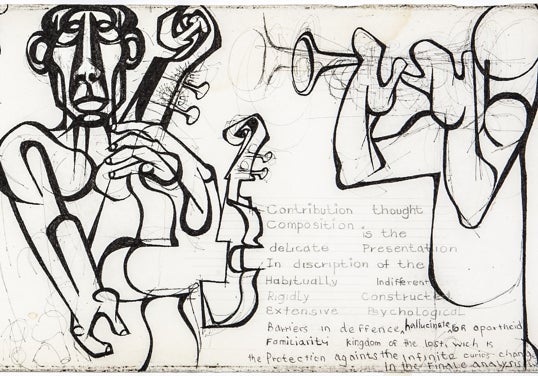 Contribution thought
Composition is the
delicate Presentation
In discription of the
Habitually Indifferent
Rigidly Constructed
Extensive Psychological
Barriers in deffence, hallucinate, OR apartheid
Familiarity kingdom of the lost, wich is
the Protection againts the infinite curies-change
In the Finale analysis